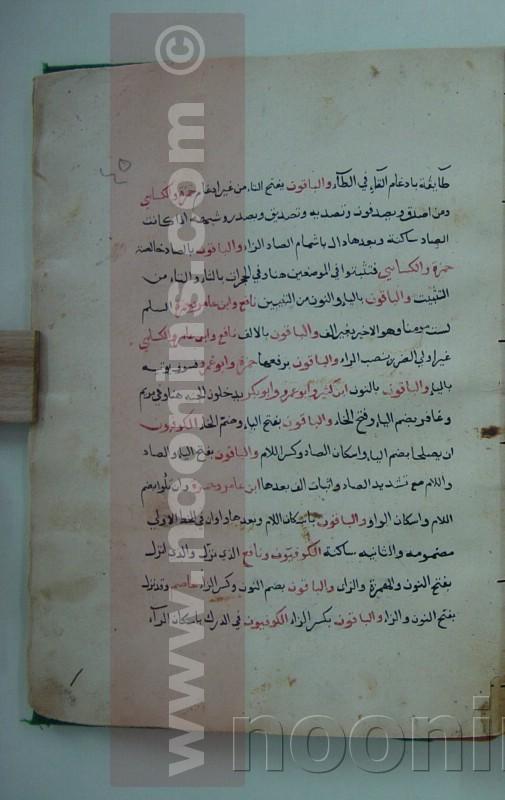 طايفة بادغام التاء في الطآء والباقون بفتح التاء من غير ادغام حمزة والكسائي
ومن اصدق ويصدفون وتصديه وتصديق ويصدر وشبهه اذا كانت
الصاد ساكنة وبعدها دال باشمام الصاد الزاء والباقون بالصاد خالصة
حمزة والكسائي فتثبتوا في الموضعين هنا وفي الحجرات بالثاء والتاء من
التثبيت والباقون بالياء والنون من التبيين نافع وابن عامر وحمزة السلم
لست مومنا وهو الاخير بغير الف والباقون بالالف نافع وابن عامر والكسائي
غير اولي الضرر بنصب الراء والباقون برفعها حمزة وابو عمرو فسوف يوتيه
بالياء والباقون بالنون ابن كثير وابو عمرو وابو بكر يدخلون الجنه هنا وفي مريم
وغافر بضم الياء وفتح الخاء والباقون بفتح الياء وضم الخاء الكوفيون
ان يصلحا بضم الياء واسكان الصاد وكسر اللام والباقون بفتح الياء والصاد
واللام مع تشديد الصاد واثبات الف بعدها ابن عامر وحمزة وان تلوا بضم
اللام واسكان الواو والباقون باسكان اللام وبعدها واوان في الخط الاولي
مضمومه والثانيه ساكنة الكوفيون ونافع الذي نزل والذي انزل
بفتح النون والهمزة والزاى والباقون بضم النون وكسر الزاء عاصم وقد نزل
بفتح النون والزاء والباقون بكسر الزاء الكوفيون في الدرك باسكان الرآء
www.noonins.com ©
noonin